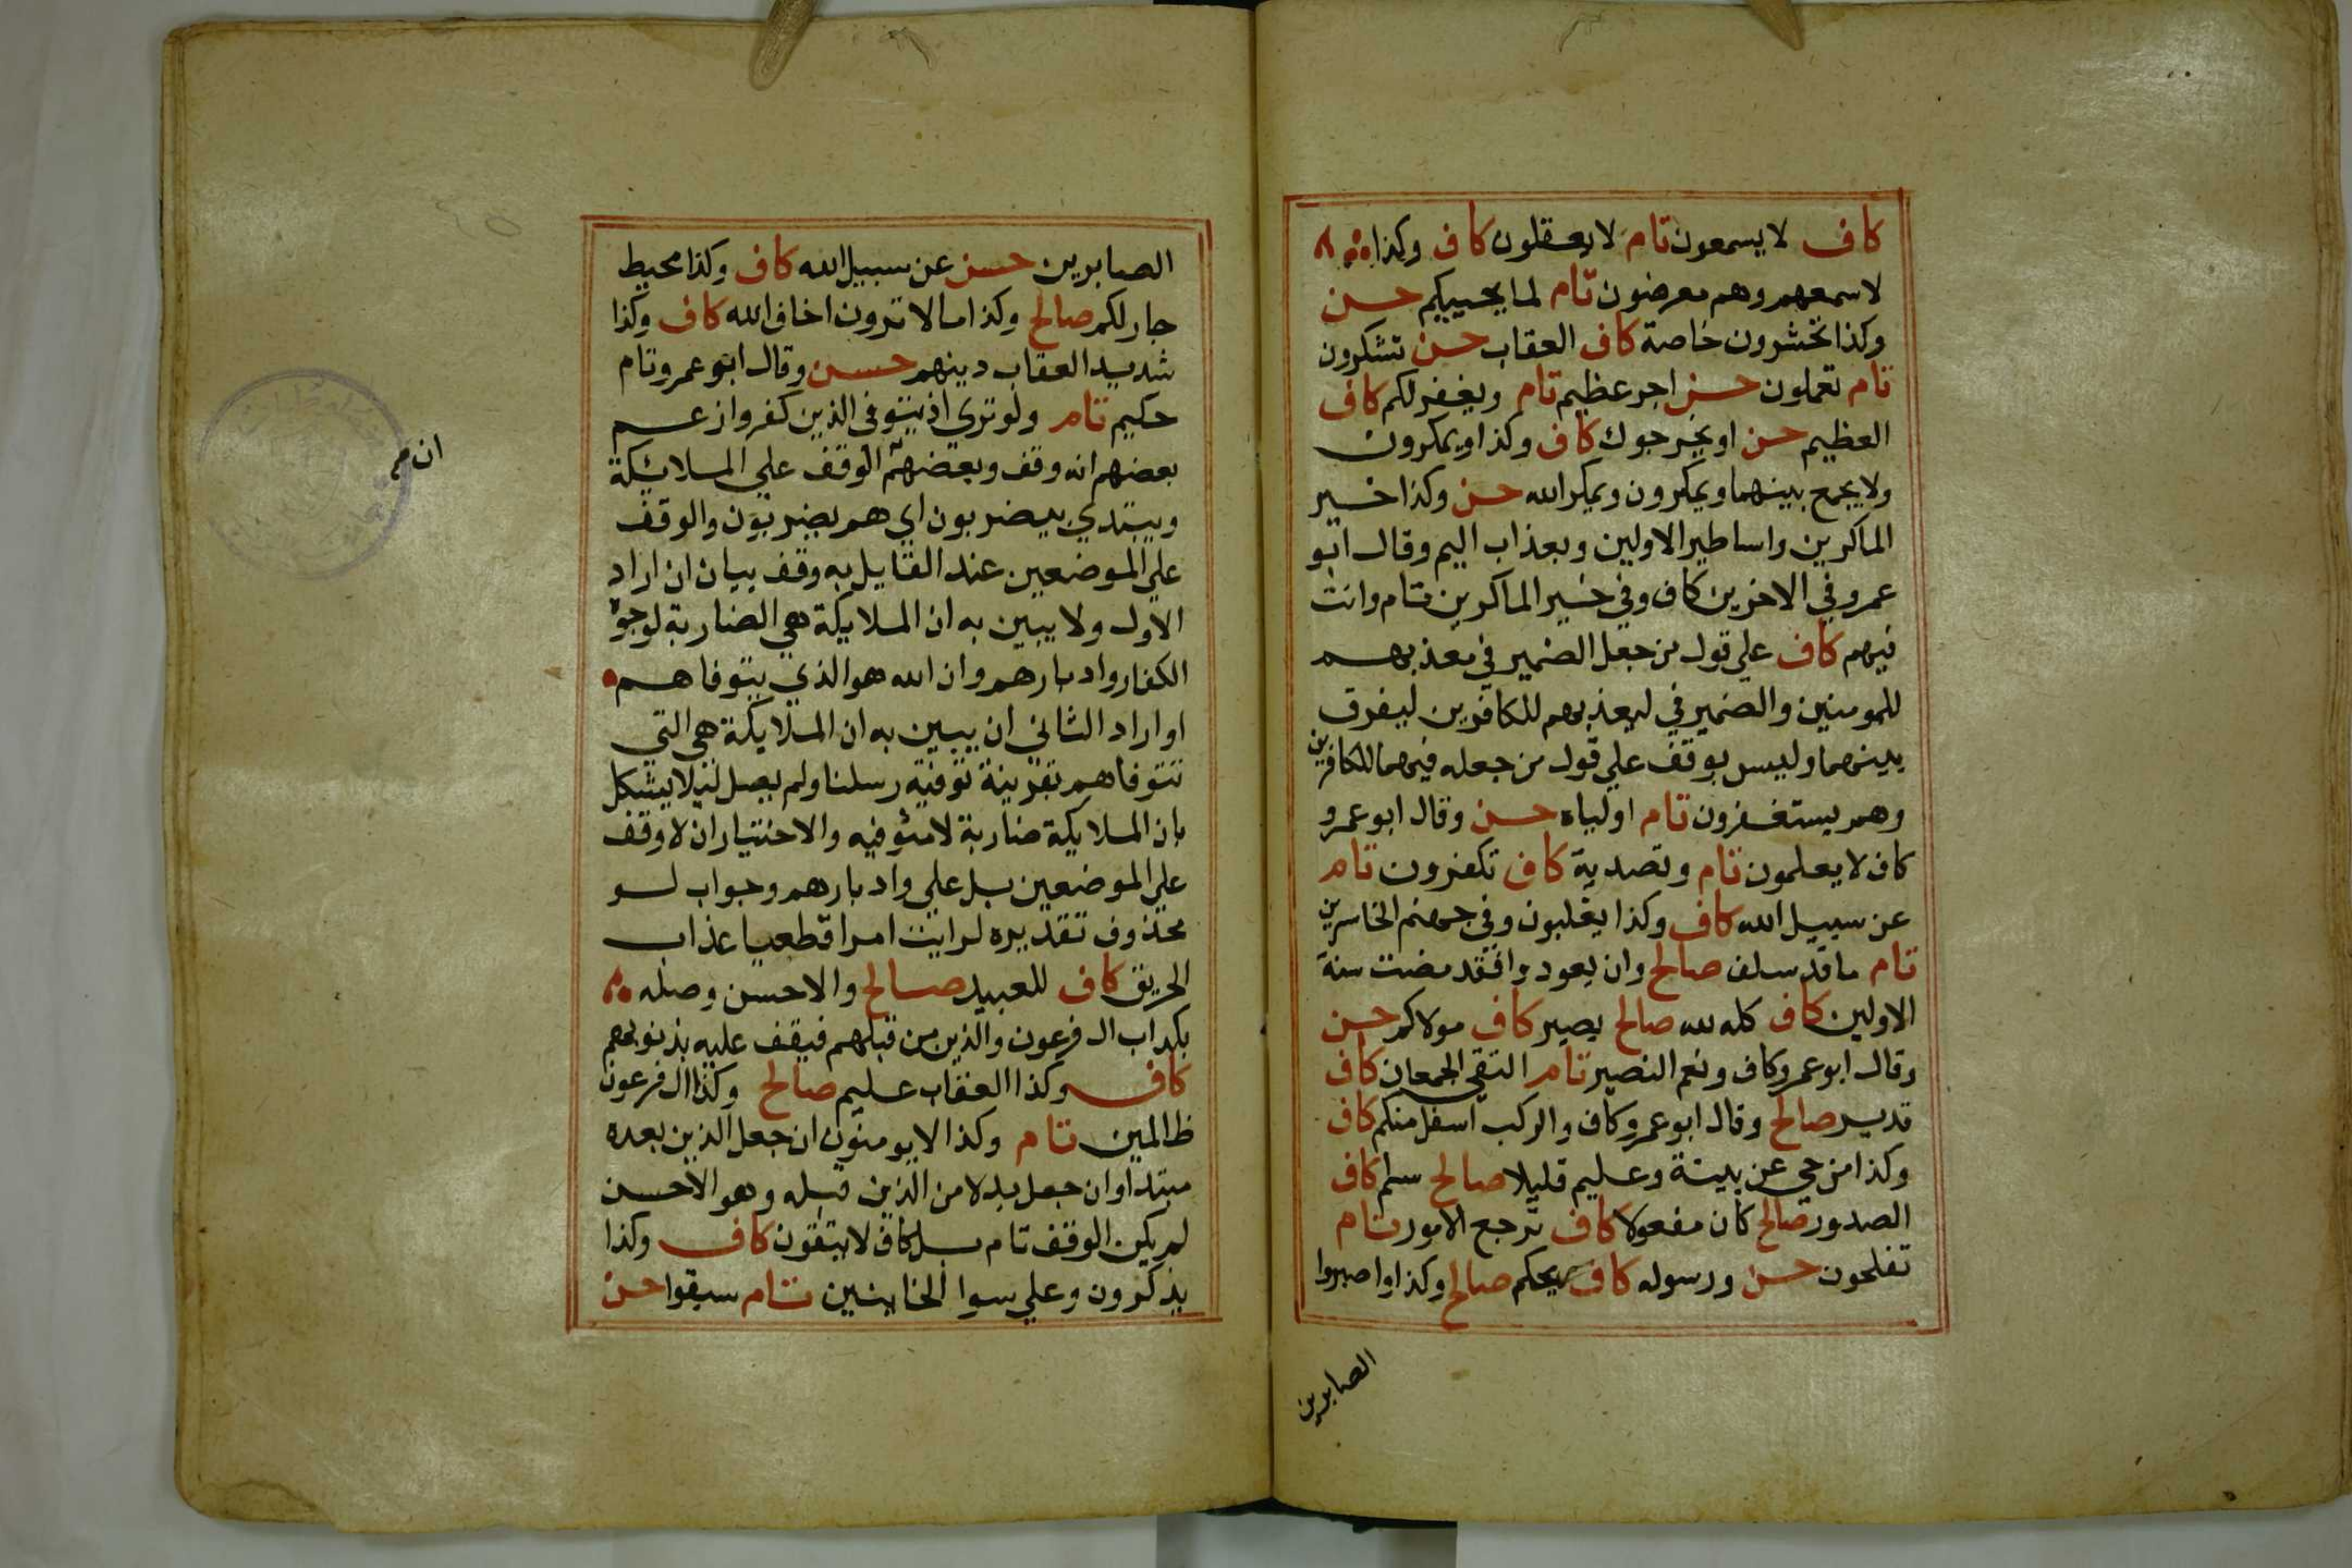 كاف لا يسمعون تام لا يعقلون كاف وكذا
لاسمعهم وهم معرضون تام لما يحييكم حسن
وكذا تحشرون خاصة كاف العقاب حسن تشكرون
تام تعملون حسن اجر عظيم تام ويغفر لكم كاف
العظيم حسن او يخرجوك كاف وكذا ويمكرون
ولا يجمع بينهما ويمكرون ويمكر الله حسن وكذا خير
الماكرين واساطير الاولين وبعذاب اليم وقال ابو
عمرو في الاخرين كاف وفي خير الماكرين تام وانت
فيهم كاف علي قول من جعل الضمير في معذبهم
للمومنين والضمير في ليعذبهم للكافرين ليفرق
بينهما وليس بوقف علي قول من جعله فيهما للكافرين
وهم يستغفرون تام اولياه حسن وقال ابو عمرو
كاف لا يعلمون تام وتصدية كاف تكفرون تام
عن سبيل الله كاف وكذا يغلبون وفي جهنم الخاسرين
تام ما قد سلف صالح وان يعودوا فقد مضت سنة
الاولين كاف كله لله صالح بصير كاف مولاكم حسن
وقال ابو عمرو كاف ونعم النصير تام التقي الجمعان كاف
قدير صالح وقال ابو عمرو كاف والركب اسفل منكم كاف
وكذا من حي عن بينة وعليم قليلا صالح سلم كاف
الصدور صالح كان مفعولا كاف ترجع الامور تام
تفلحون حسن ورسوله كاف ريحكم صالح وكذا واصبروا
الصابرين
الصابرين حسن عن سبيل الله كاف وكذا محيط
جار لكم صالح وكذا ما لا ترون اخاف الله كاف وكذا
شديد العقاب دينهم حسن وقال ابو عمرو تام
حكيم تام ولو تري اذ يتوفي الذين كفروا زعم
بعضهم انه وقف وبعضهم الوقف علي الملائكة
ان
ويبتدي بيضربون اي هم يضربون والوقف
علي الموضعين عند القايل به وقف بيان ان اراد
الاول ولا يبين به ان الملايكة هي الضاربة لوجوه
الكفار وادبارهم وان الله هو الذي يتوفاهم
او اراد الثاني ان يبين به ان الملايكة هي التي
تتوفاهم بقرينة توفته رسلنا ولم يصل ليلا يشكل
بان الملايكة ضاربة لا متوفيه والاختيار ان لا وقف
علي الموضعين بل علي وادبارهم وجواب لو
محذوف تقديره لرايت امرا قطعيا عذاب
الحريق كاف للعبيد صالح والاحسن وصله
بكداب ال فرعون والذين من قبلهم فيقف عليه بذنوبهم
كاف وكذا العقاب عليم صالح وكذا ال فرعون
ظالمين تام وكذا لا يومنون ان جعل الذين بعده
مبتدا وان جعل بدلا من الذين قبله وهو الاحسن
لم يكن الوقف تام بل كاف لا يتقون كاف وكذا
يذكرون وعلي سوا الخاينين تام سبقوا حسن